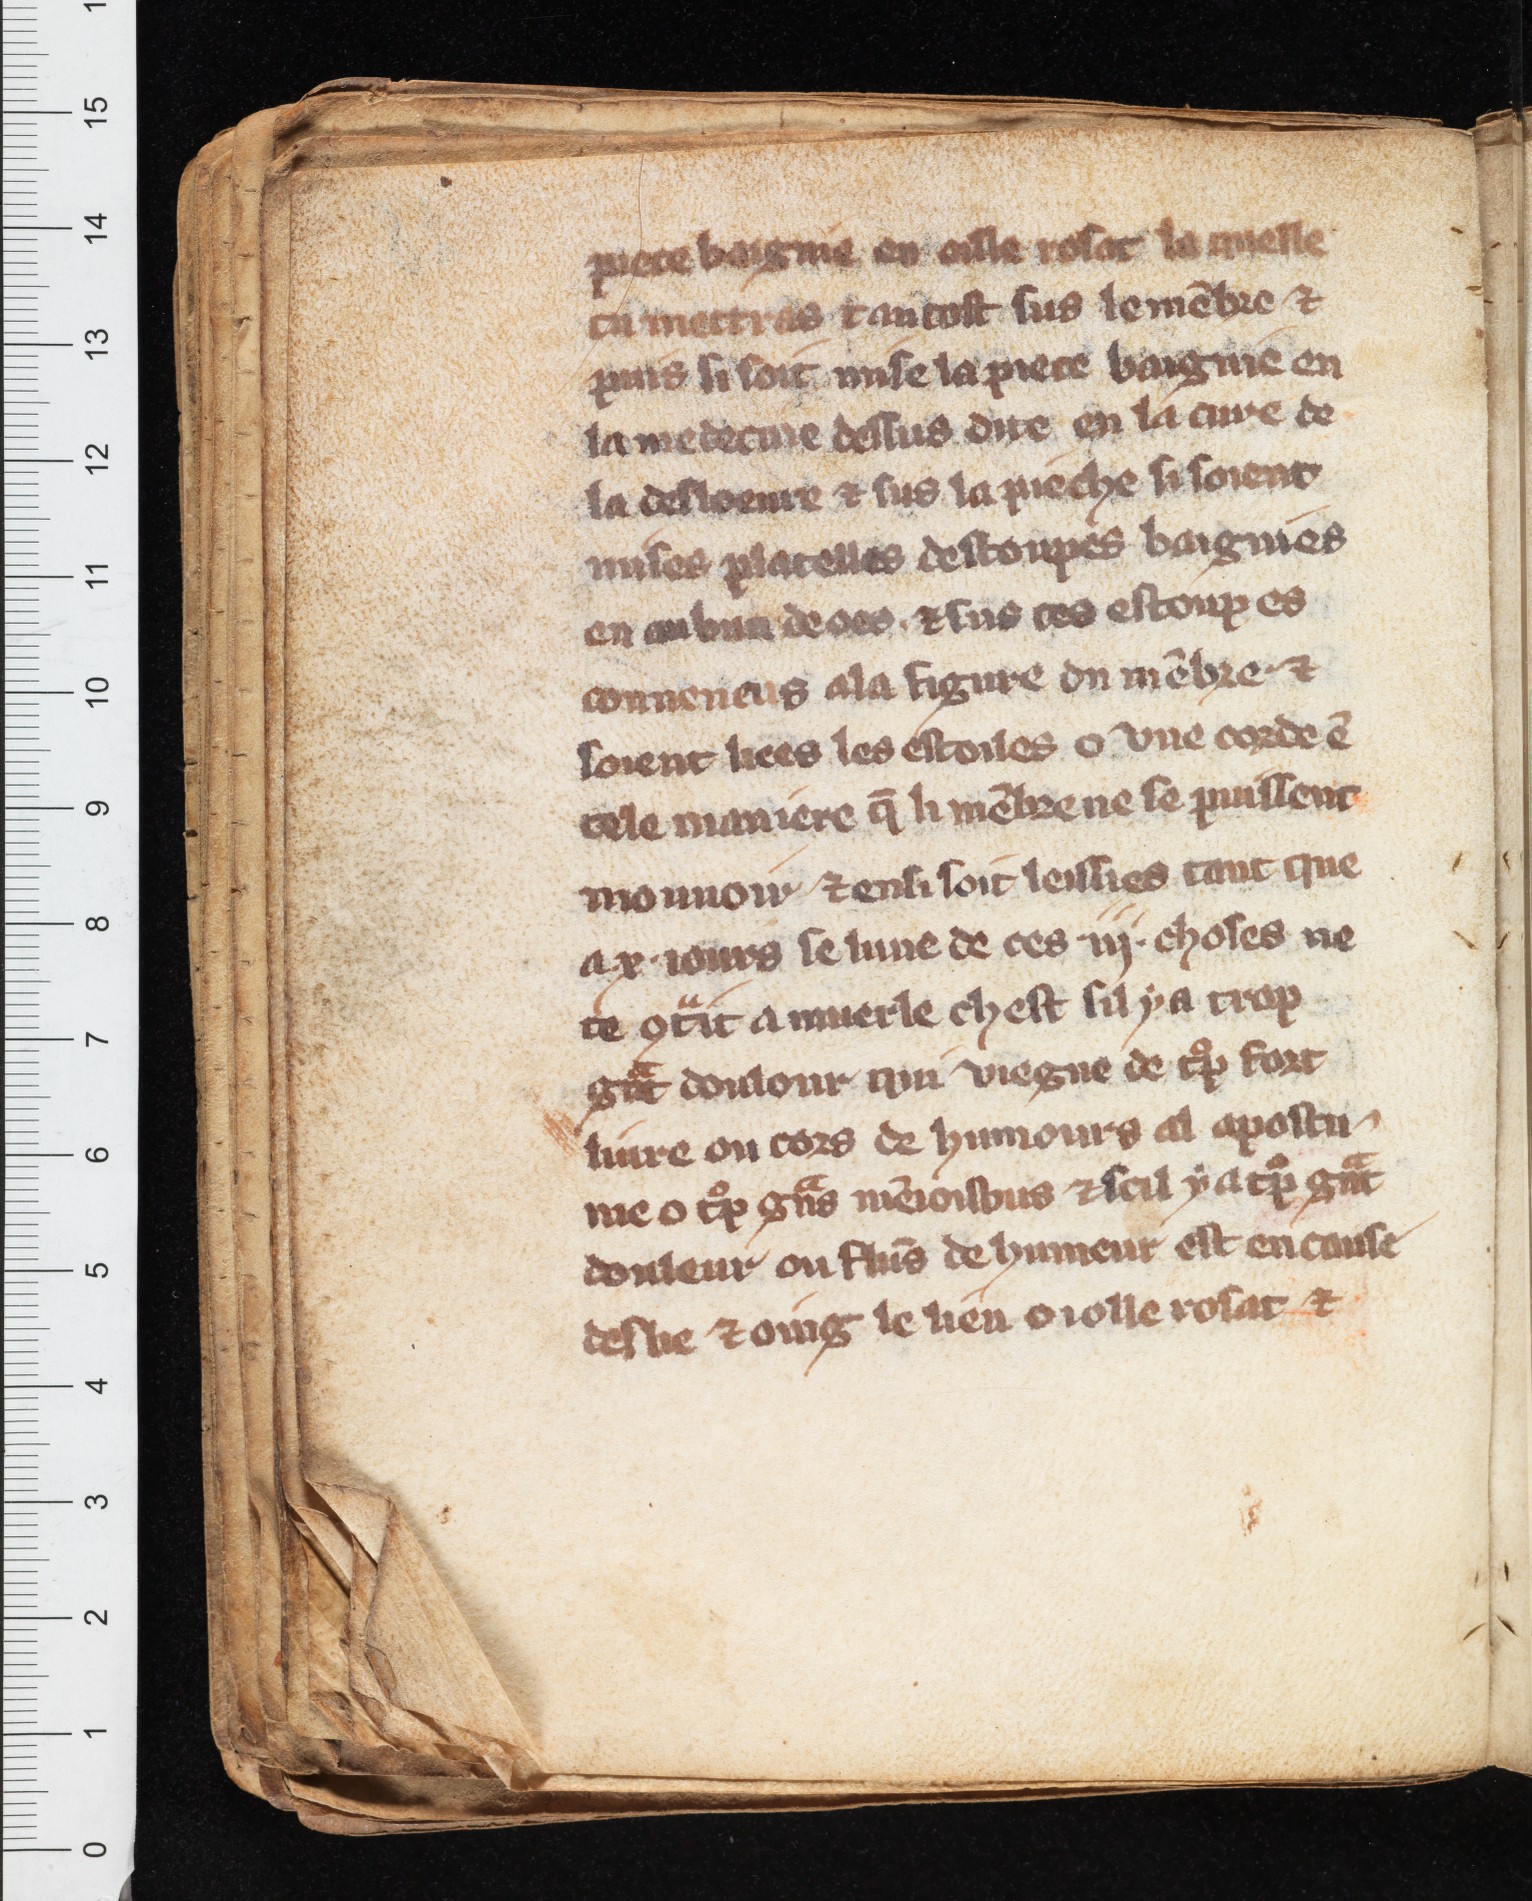 piece baignie en oille rosat la quelle
tu mettras tantost sus le mẽbre ⁊
puis si soit mise la piece baignie en
la medecine dessus dite en la cure de
la desloeure ⁊ sus la pieche si soient
mises platelles destoupes baignies
en aubun de oes . ⁊ sus ces estoupes
conueneus a la figure du mẽbre . ⁊
soient liees les estoiles o vne corde ẽ
tele maniere q̃ li mẽbre ne se puissent
mouuoir ⁊ ensi soit leissies tant que
a .x. iours se lune de ces .iij. choses ne
te ꝯtͣit a muerle chest sil y a trop
gͣnt doulour qui viegne de tͦp fort
liure ou cors de humours al apostu
me o tͦp gͣns ⁊ scil y a tͦp gͣnt
douleur ou fluis̃ de humeur est en cause
deslie ⁊ oing le lieu o iolle rosat ⁊
15
14
13
12
11
10
9
8
7
6
5
4
3
2
1
0